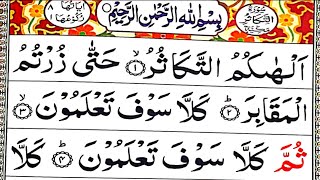 سورة التكاثر بسم الله الرحمن الرحيم
اَلْهٰىكُمُ التَّكَاثُرُ ۙ﴿۱﴾ حَتّٰى زُرْتُمُ
الْمَقَابِرَ ؕ﴿۲﴾ كَلَّا سَوْفَ تَعْلَمُوْنَ ۙ﴿۳﴾
ثُمَّ كَلَّا سَوْفَ تَعْلَمُوْنَ ؕ﴿۴﴾ كَلَّا